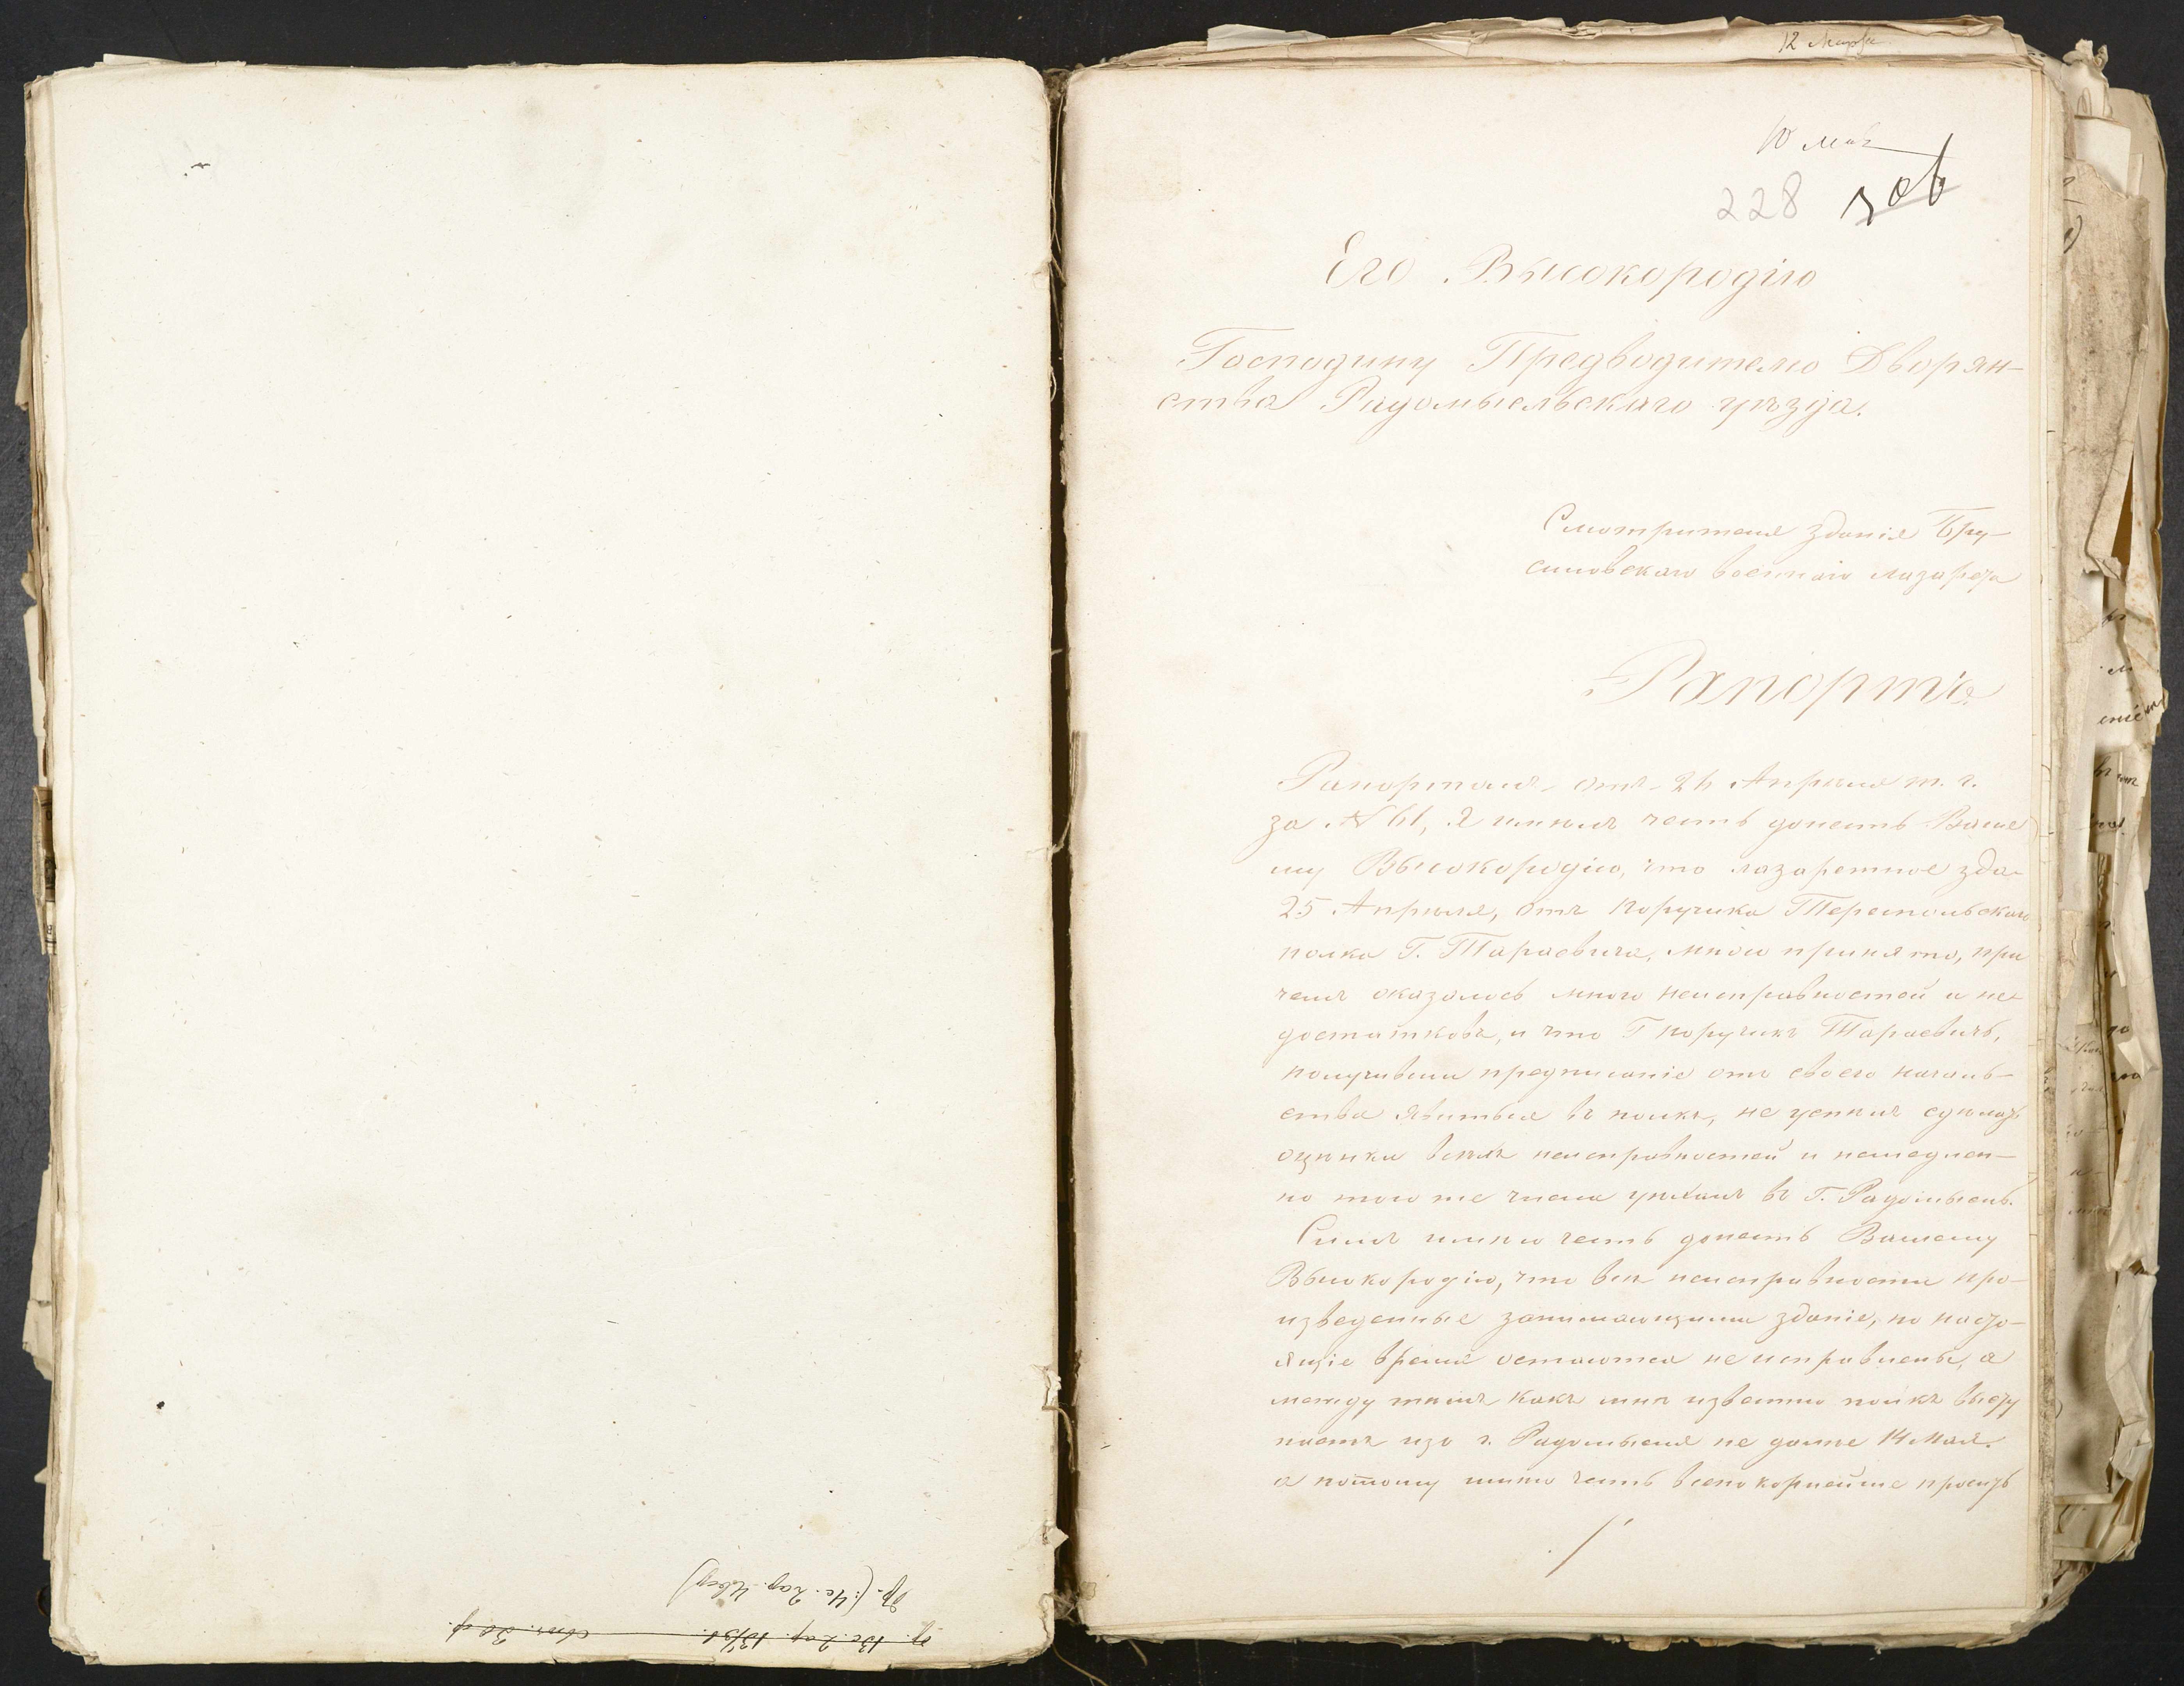 12 Марта
10 мая
228 306
Его Высокородію
Господину Предводителю Дворян-
ства Радомысльскаго уѣзда.
Смотрителя зданія Бру-
силовскаго военнаго лазарета
Рапортъ.
Рапортомъ отъ 26 Апрѣля т. г.
за № 61, Я имѣлъ честь донесть Ваше
му Высокородію, что лазаретное зда-
25 Апрѣля, отъ Поручика
полка Г. Тараевича, мною принято, при
чемъ оказалось много неисправностей и не-
достатковъ, и что Г поручикъ Тараевичъ,
получивши предписаніе отъ своего началь-
ства явиться въ полкъ, не успѣлъ сдѣлать
оцѣнки всѣхъ неисправностей и немедлен-
но того же числа уѣхалъ въ Г. Радомысль.
Симъ имѣю честь донесть Вашему
Высокородію, что всѣ неисправности про-
изведенные занимающими зданіе, по насто-
ящіе время остаются не исправлены, а
между тѣмъ какъ мнѣ извѣстно полкъ высту
паетъ изъ г. Радомысля не далѣе 14 Мая.
а потому имѣю честь всепокорнейше просить